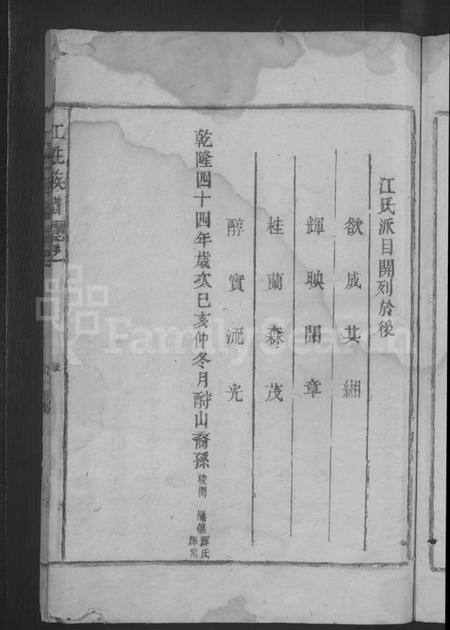 江氏派目開列於後
欲成其
輝映閣章
桂蘭森茂
醇實流光
乾隆四十四年歲次巳亥仲冬月酧山裔孫
江氏族譜
FamilySearch